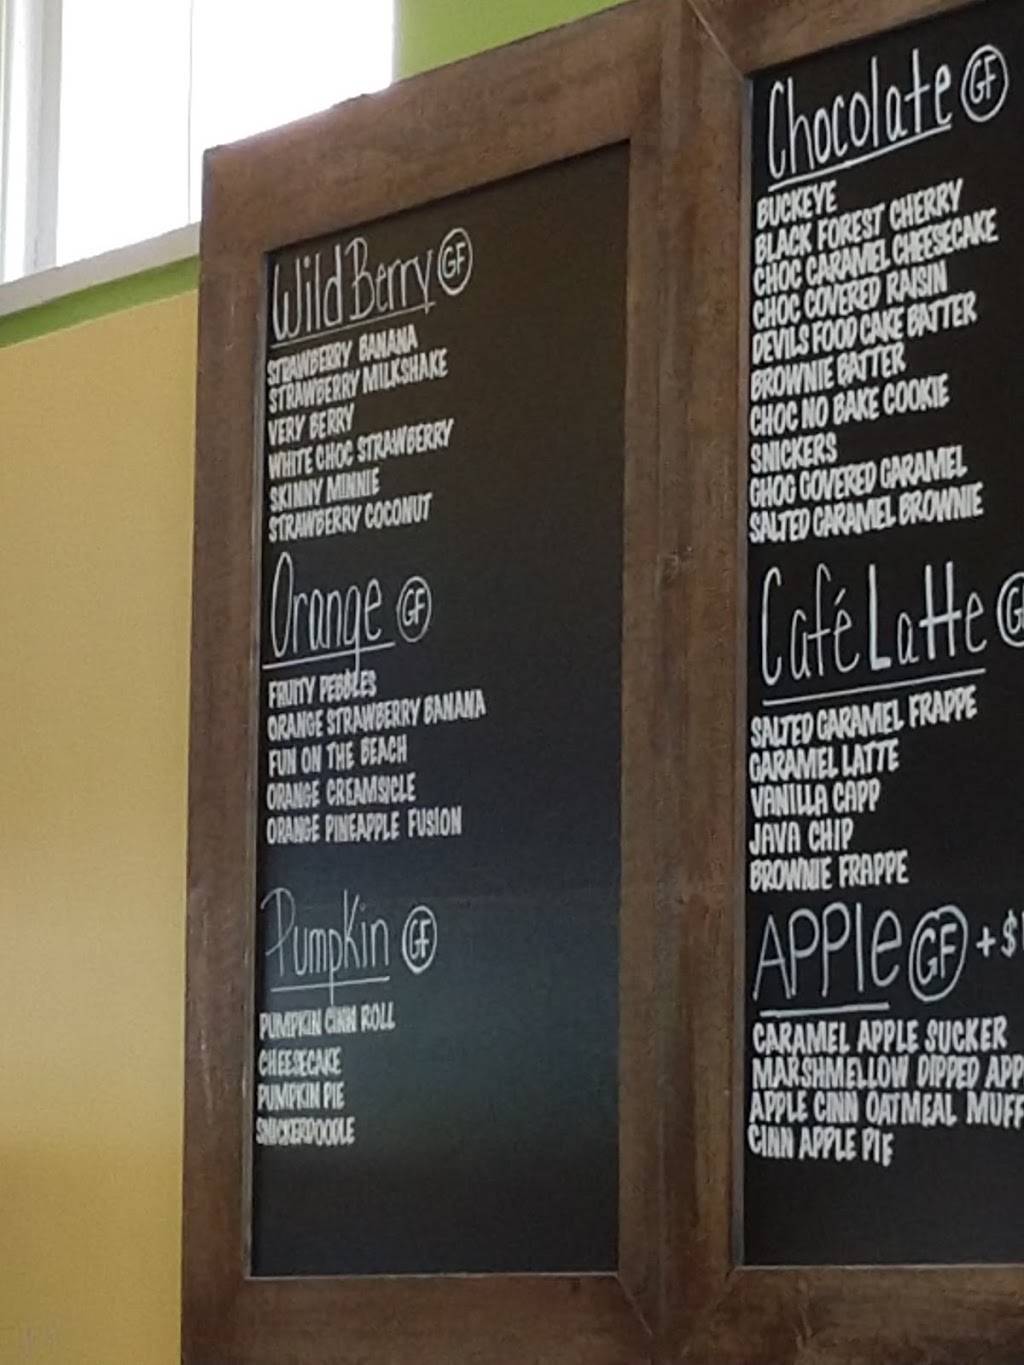 Wild Berry GF
STRAWBERRY BANANA
STRAWBERRY MILKSHAKE
VERY BERRY
WHITE CHOC STRAWBERRY
SKINNY MINNIE
STRAWBERRY COCONUT
Orange GF
FRUITY PEBBLES
ORANGE STRAWBERRY BANANA
FUN ON THE BEACH
ORANGE CREAMSICLE
ORANGE PINEAPPLE FUSION
Pumpkin GF
PUMPKIN CINN ROLL
CHEESECAKE
PUMPKIN PIE
SNICKERDOODLE
Chocolate GF
BUCKEYE
BLACK FOREST CHERRY
CHOC CARAMEL CHEESECAKE
CHOC COVERED RAISIN
DEVILS FOOD CAKE BATTER
BROWNIE BATTER
CHOC NO BAKE COOKIE
SNICKERS
CHOC COVERED CARAMEL
SALTED CARAMEL BROWNIE
Café Latte G
SALTED CARAMEL FRAPPE
CARAMEL LATTE
VANILLA CAPP
JAVA CHIP
BROWNIE FRAPPE
APPle GF +$
CARAMEL APPLE SUCKER
MARSHMELLOW DIPPED APP
APPLE CINN OATMEAL MUFF
CINN APPLE PIE